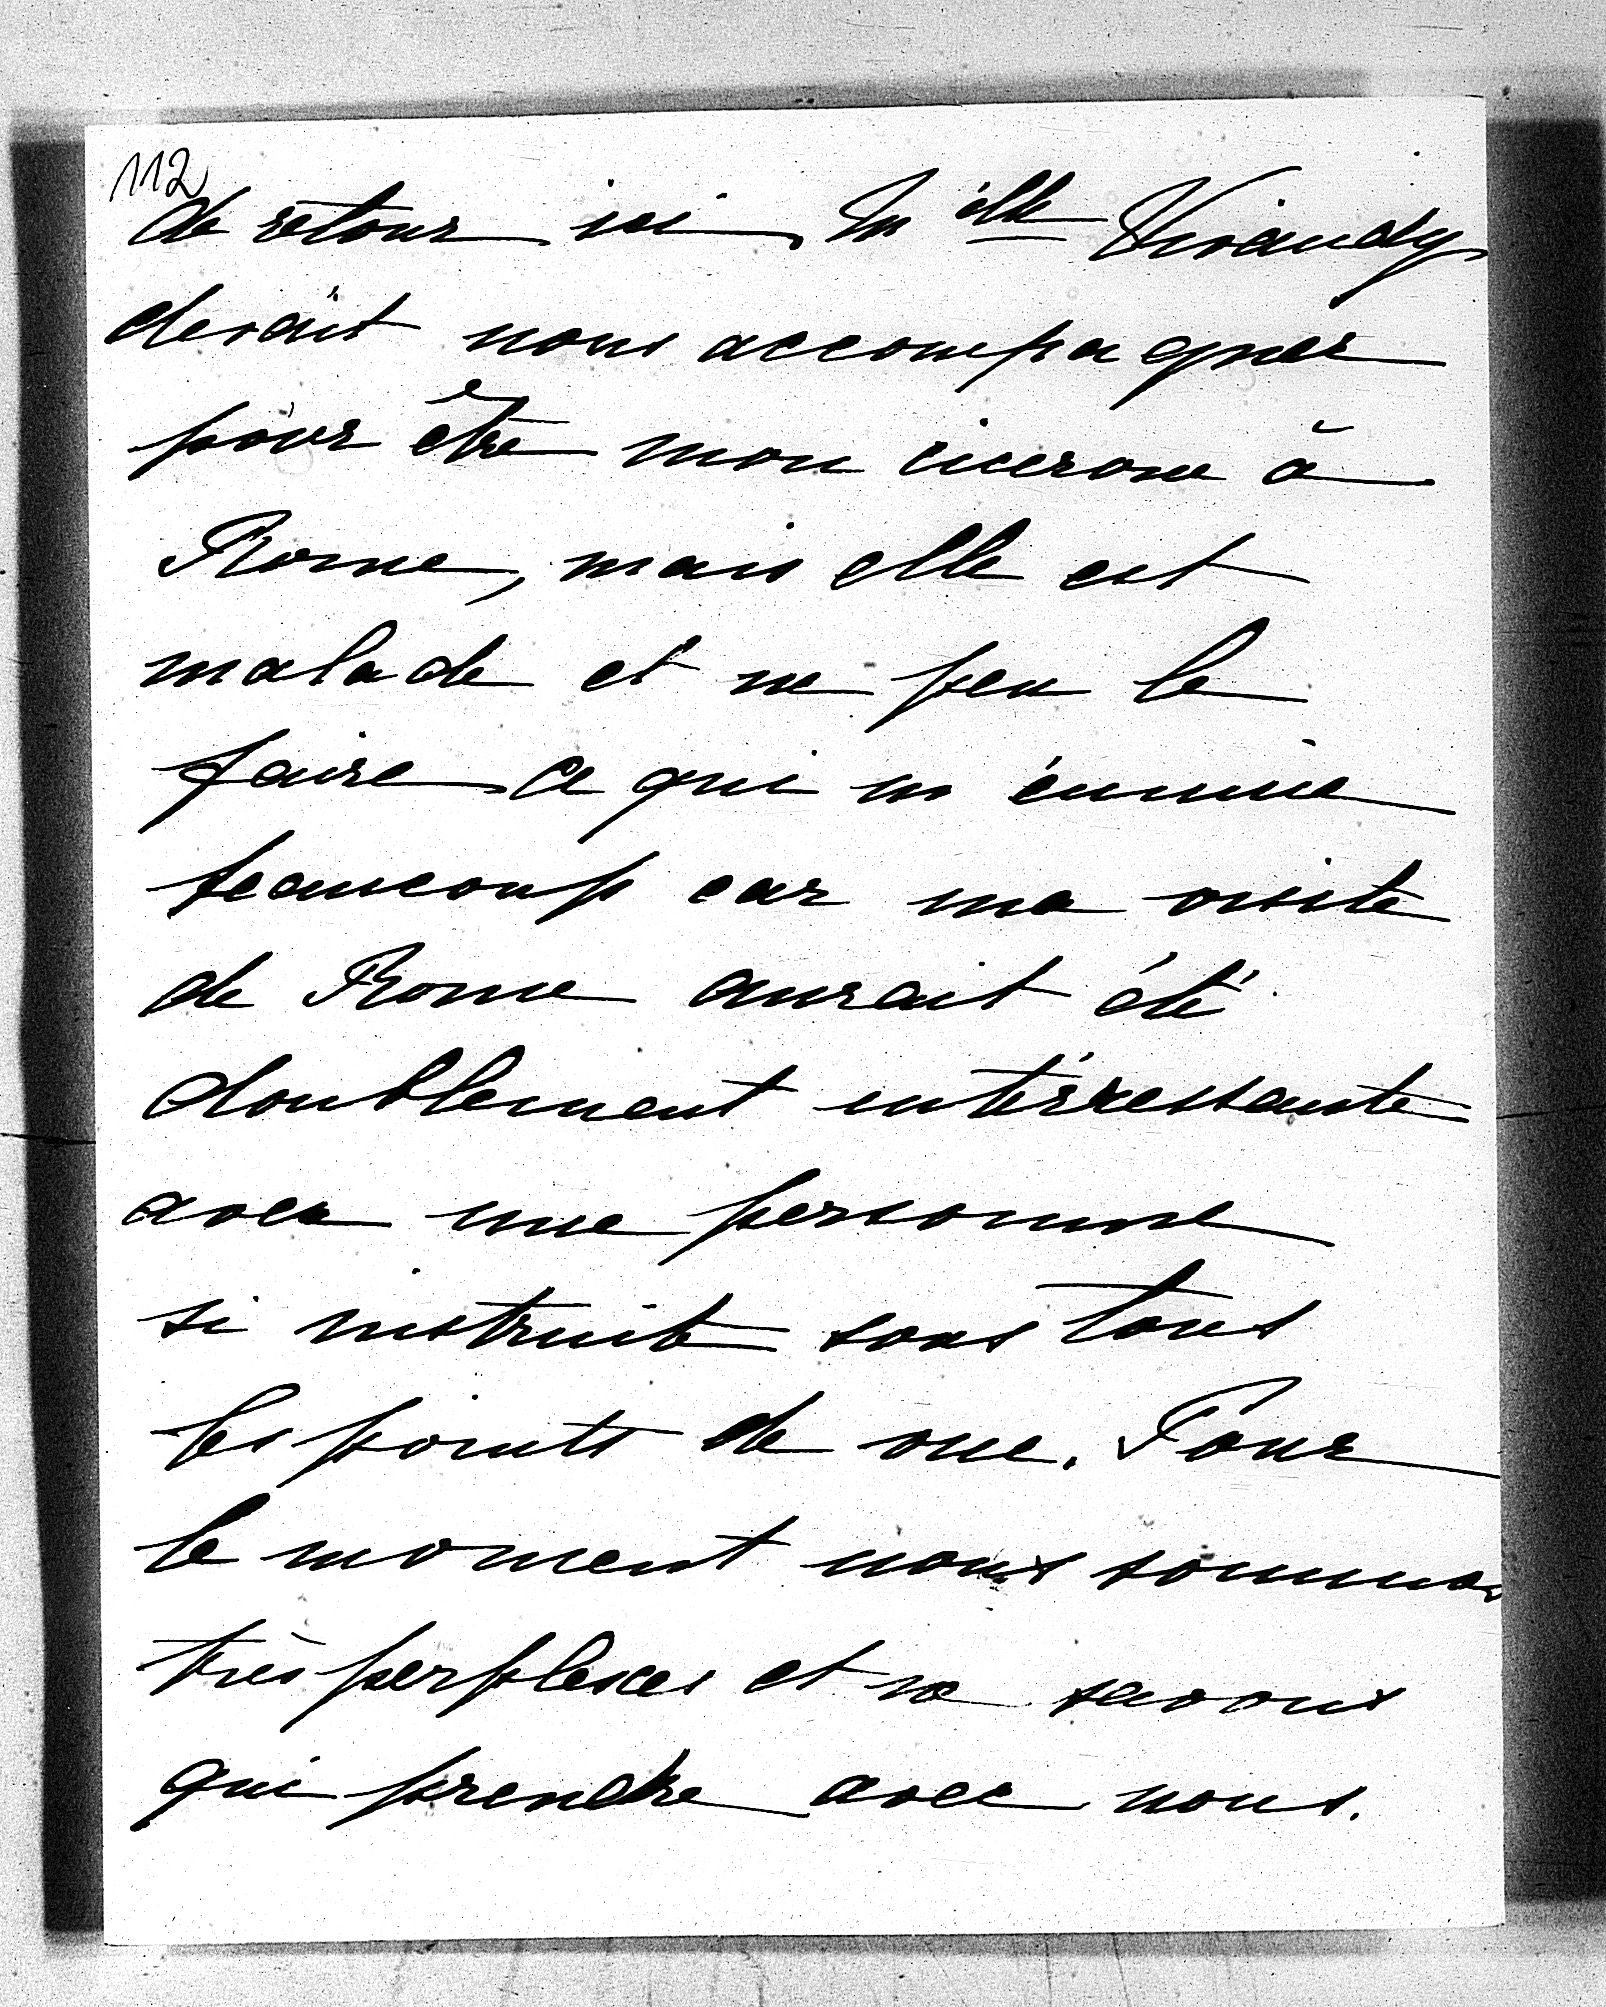 112
de retour ici, Melle
devait nous accompagner
pour être mon cicerone à
Rome, mais elle est
malade et ne peu le
faire ce qui m'ennuie
beaucoup car ma visite
de Rome aurait été
doublement intérressante
avec une personne
si instruite sous tous
les points de vue. Pour
le moment nous sommes
très perplexes et ne savons
qui prendre avec nous.